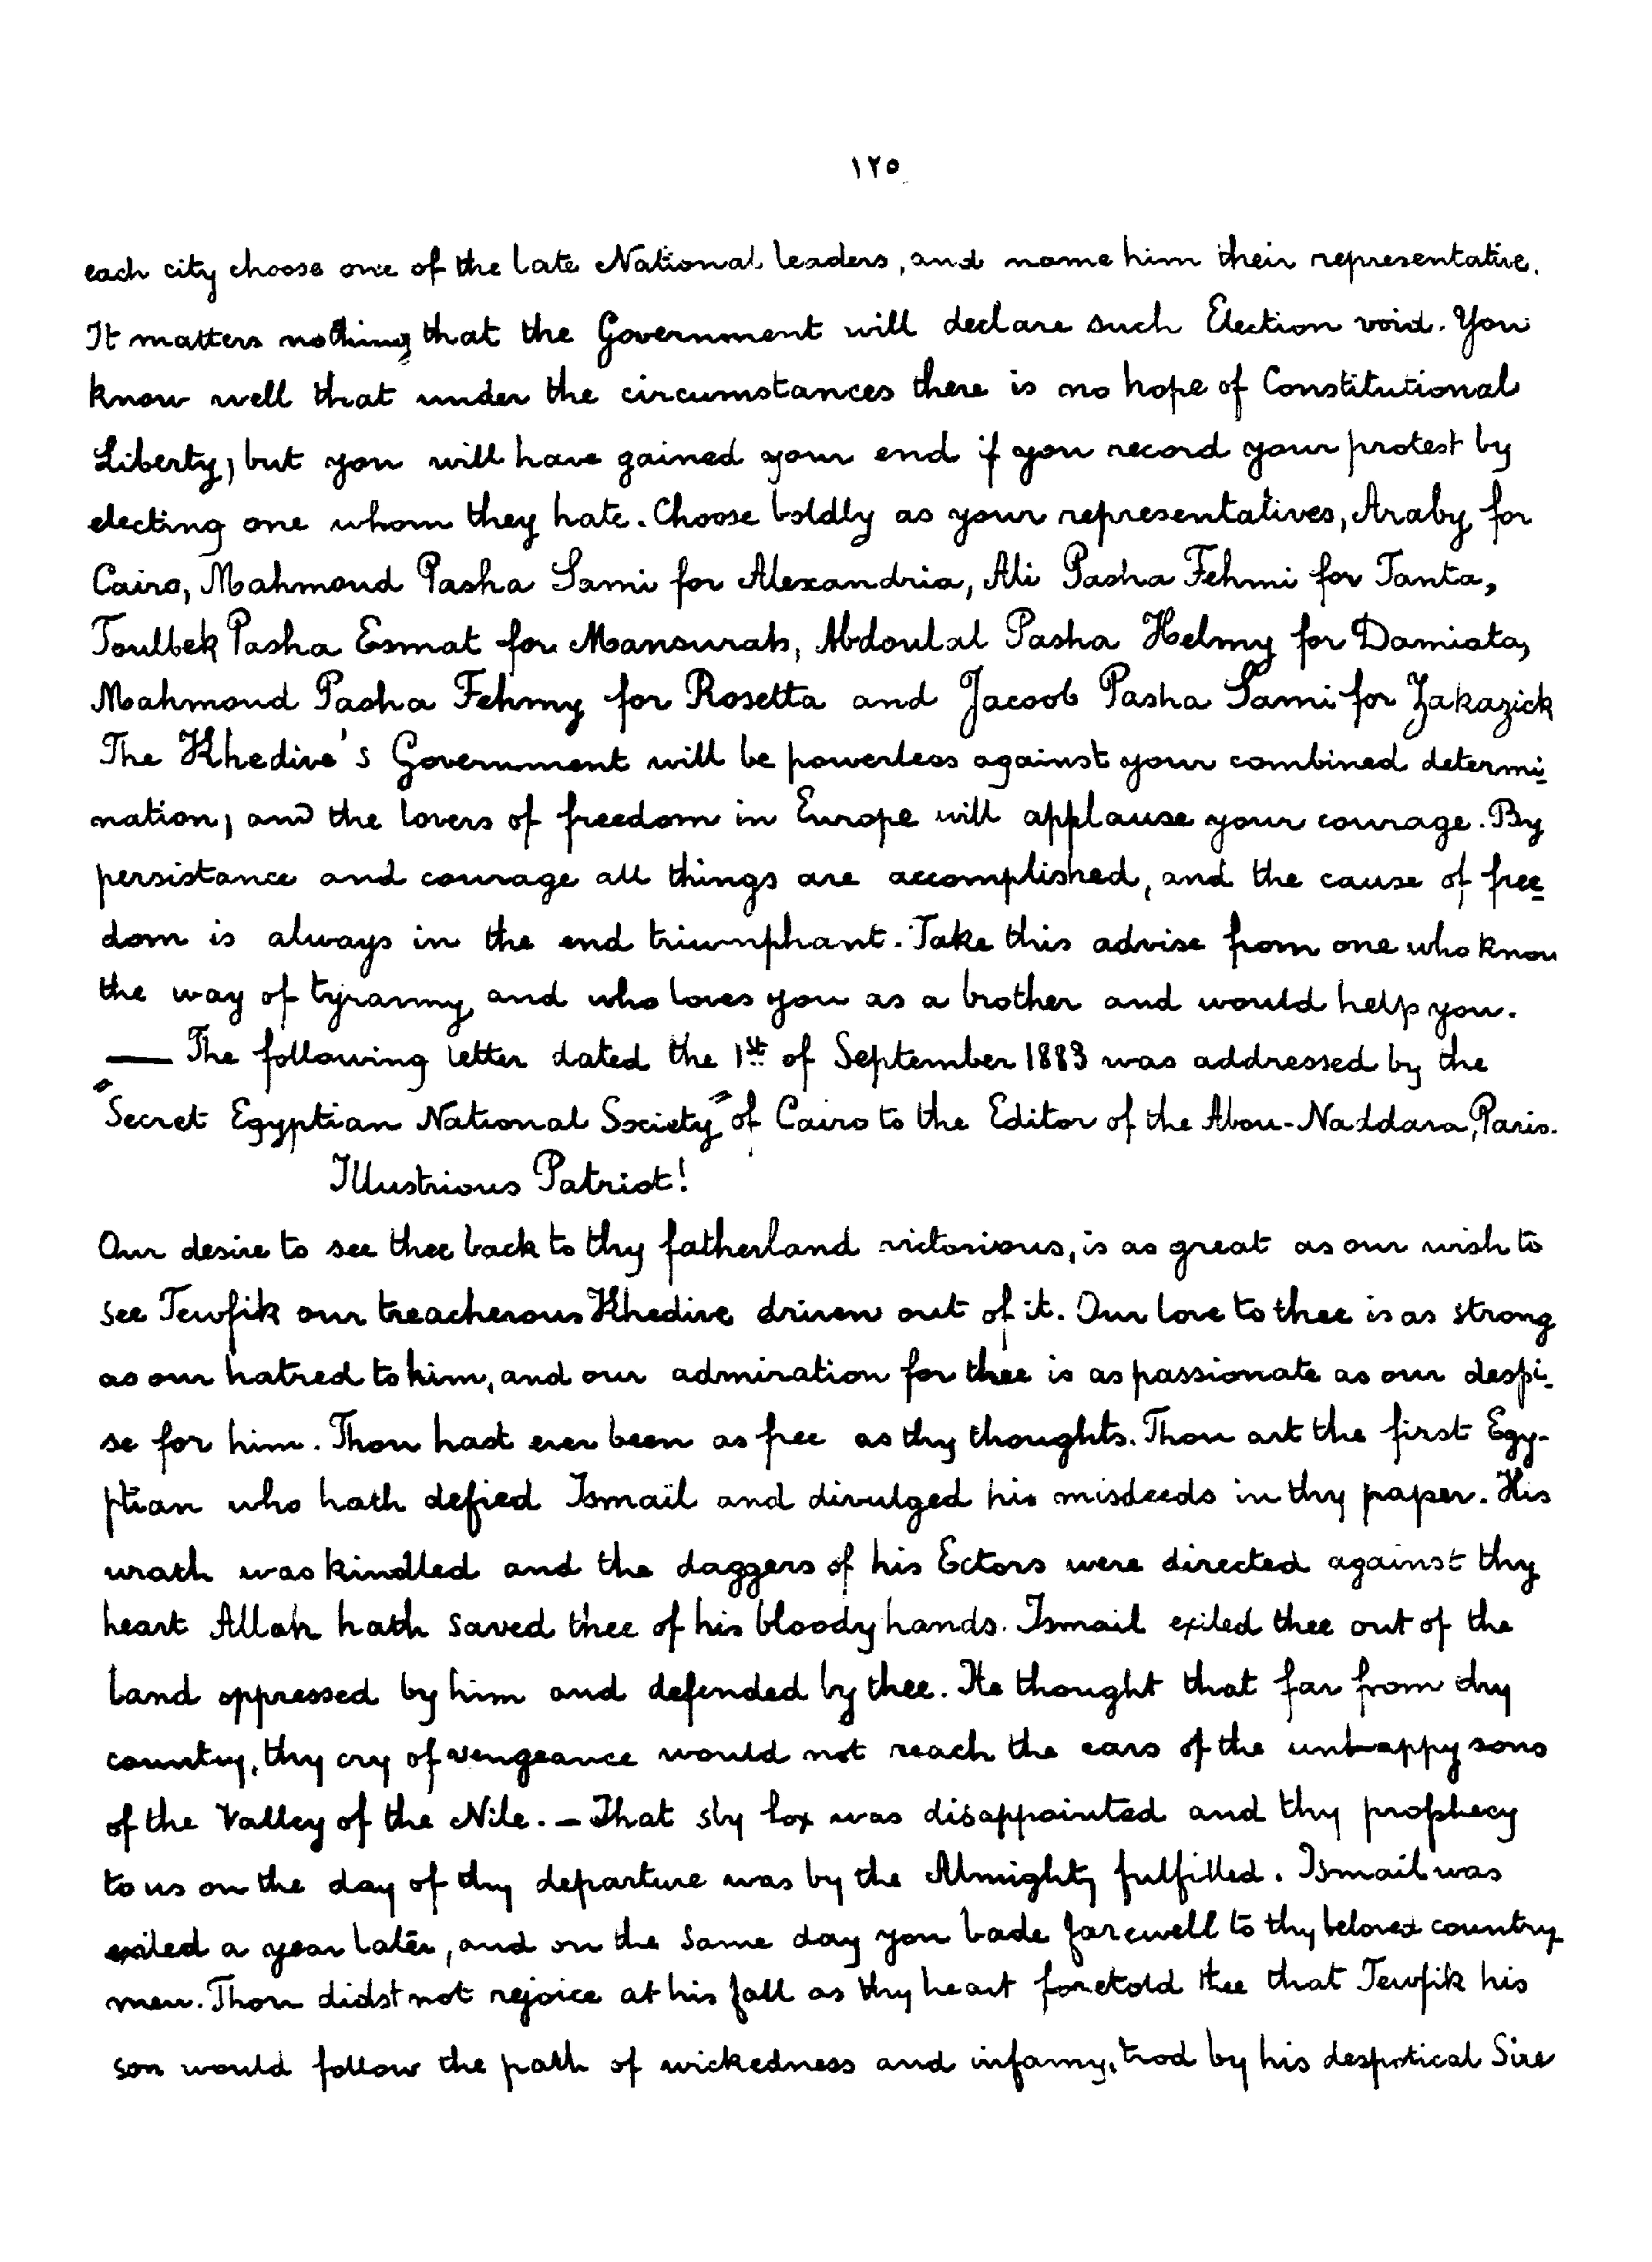 ١٢٥
each city choose one of the late National leaders, and name him their representative.
It matters nothing that the Government will declare such Election void. You
know well that under the circumstances there is no hope of Constitutional
Liberty; but you will have gained your end if you record your protest by
electing one whom they hate. Choose boldly as your representatives, Araby for
Cairo, Mahmoud Pasha Sami for Alexandria, Ali Pasha Fehmi for Tanta,
Toulbek Pasha Esmat for Mansurah, Abdoulal Pasha Helmy for Damiata,
Mahmoud Pasha Fehmy for Rosetta and Jacoob Pasha Sami for Zakazick
The Khedive's Government will be powerless against your combined determi-
nation; and the lovers of freedom in Europe will applause your courage. By
persistance and courage all things are accomplished, and the cause of free-
dom is always in the end triumphant. Take this advise from one who know
the way of tyranny, and who loves you as a brother and would help you.
— The following letter dated the 1st of September 1883 was addressed by the
"Secret Egyptian National Society" of Cairo to the Editor of the Abou-Naddara, Paris.
Illustrious Patriot!
Our desire to see thee back to thy fatherland victorious, is as great as our wish to
see Tewfik our treacherous Khedive driven out of it. Our love to thee is as strong
as our hatred to him, and our admiration for thee is as passionate as our despi-
se for him. Thou hast ever been as free as thy thoughts. Thou art the first Egy-
ptian who hath defied Ismaïl and divulged his misdeeds in thy paper. His
wrath was kindled and the daggers of his Ectors were directed against thy
heart Allah hath saved thee of his bloody hands. Ismail exiled thee out of the
land oppressed by him and defended by thee. He thought that far from thy
country, thy cry of vengeance would not reach the ears of the unhappy sons
of the Valley of the Nile. — That sly fox was disappointed and thy prophecy
to us on the day of thy departure was by the Almighty fulfilled. Ismail was
exiled a year later, and on the same day you bade farewell to thy beloved country
men. Thou didst not rejoice at his fall as thy heart foretold thee that Tewfik his
son would follow the path of wickedness and infamy, trod by his despotical Sire